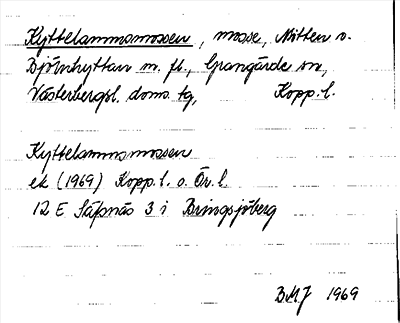 Kyttelammsmossen, mosse, Nitten o.
Björnhyttan m. fl., Grangärde sn,
Västerbergsl. doms. tg, Kopp. l.
Kyttelammsmossen
ek (1969) Kopp. l. o. Ör. l.
12 E Säfsnäs 3 i Bringsjöberg
BMJ 1969